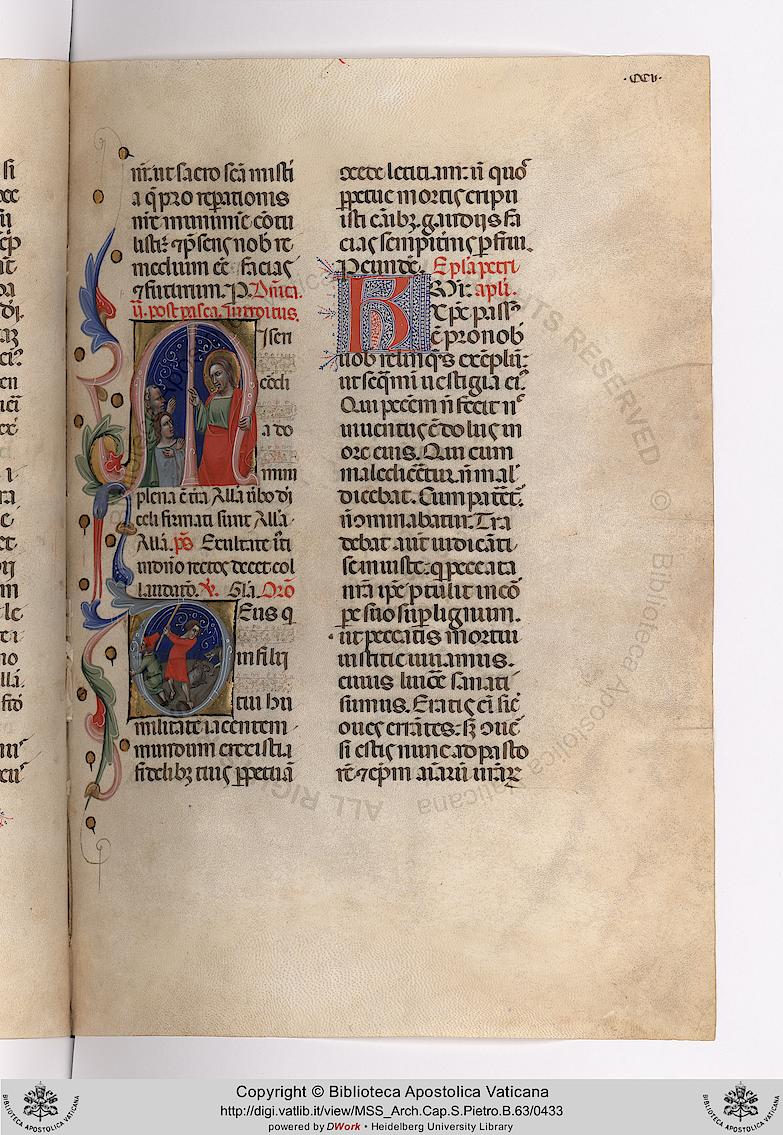 ·CCV·
nr̄. ut sacro scā misti
a q̄ pro reparationis
nr̄e munimīe cōtu
listi: ⁊ p̄sens nob̄ re
medium eē facias
⁊ futurum. P. Dn̄ica.
ij. post pasca. Introitus.
Misen
cordi
a do
mini
plena ē t̄ra All̄a ūbo dn̄i
celi firmati sunt All̄a
All̄a. p̄s Exultate iusti
in dn̄o rectos decet col
laudatō. V̄. Gl̄a. Orō
Deus q
in filij
tui hu
militate iacentem
mundum erexisti
fidelibꝫ tuis perpetuā
cede letitiam: ut quos
perpetue mortis eripui
isti casibꝫ. gaudijs fa
cias sempiternis perfrui.
Per eunde. Ep̄la petri
Kr̄i: apl̄i.
xp̄c passus
ē pro nob
uob relinqs exēplū:
ut sequimī uestigia ei.
Qui peccm̄ n̄ fecit nec
inuentus ē dolus in
ore eius. Qui cum
malediceretur. n̄ mal
dicebat. Cum pateret.
n̄ cominabatur. Tra
debat aut iudicāti
se iniuste. q peccata
nr̄a ip̄e p̄tulit in cor
pe suo super lignum.
ut peccatis mortui
iustitie uiuamus.
cuius liuore sanati
sumus. Eratis ei sic
oues errātes: sꝫ cōue
si estis nunc ad pasto
rē ⁊ ep̄m aīarū uīarꝝ
Copyright © Biblioteca Apostolica Vaticana
http://digi.vatlib.it/view/MSS_Arch.Cap.S.Pietro.B.63/0433
powered by DWork • Heidelberg University Library
BIBLIOTECA APOSTOLICA VATICANA
BIBLIOTECA APOSTOLICA VATICANA